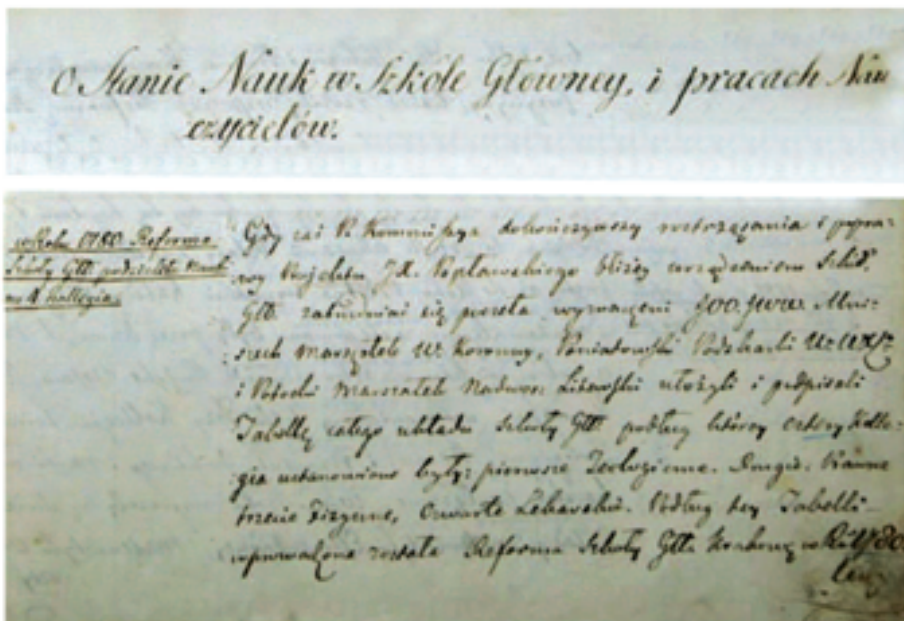 O Stanie Nauk w Szkole Główney, i pracach Nau
czycielów.
w Roku 1780. Reforma
Szkoły Głł. podzieliła nauki
na 4 Kollegia.
Gdy zaś P. Kommissya dokończywszy roztrząsania i popra-
wy Projektu JX. Popławskiego bliżey urządzeniem Szkół.
Głł. zatrudniać się poczęła wyznaczeni JOO. JWW. Mni-
szech Marszałek W. Koronny, Poniatowski Podskarbi W.
i Potocki Marszałek Nadwor: Litewski ułożyli i podpisali
Tabellę całego układu Szkoły Głł. podług którey cztery Kolle-
gia ustanowione były: pierwsze Teologiczne. Drugie. Prawne
trzecie Fizyczne, Czwarte Lekarskie. Podług tey Tabelli
wprowadzona została Reforma Szkoły Głł. w 1780